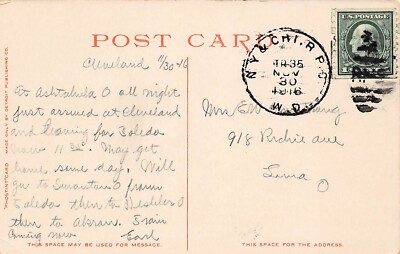 POST CARD
Cleveland 11/30-16
At Ashtabula O all night
just arrived at Cleveland
and leaving for Toledo
now 11 30. May get
home some day. Will
go to Swanton O from
Toledo then to Deshler O
then to Akron. Train
Coming now Earl
THIS SPACE MAY BE USED FOR MESSAGE.
"PHOSTINT" CARD
MADE ONLY BY DETROIT PUBLISHING CO.
N.Y. & CHI. R.P.O.
TR35
NOV
30
1916
W.D.
U.S. POSTAGE
Mrs E W
918 Richie ave
Lima O
THIS SPACE IS FOR THE ADDRESS.